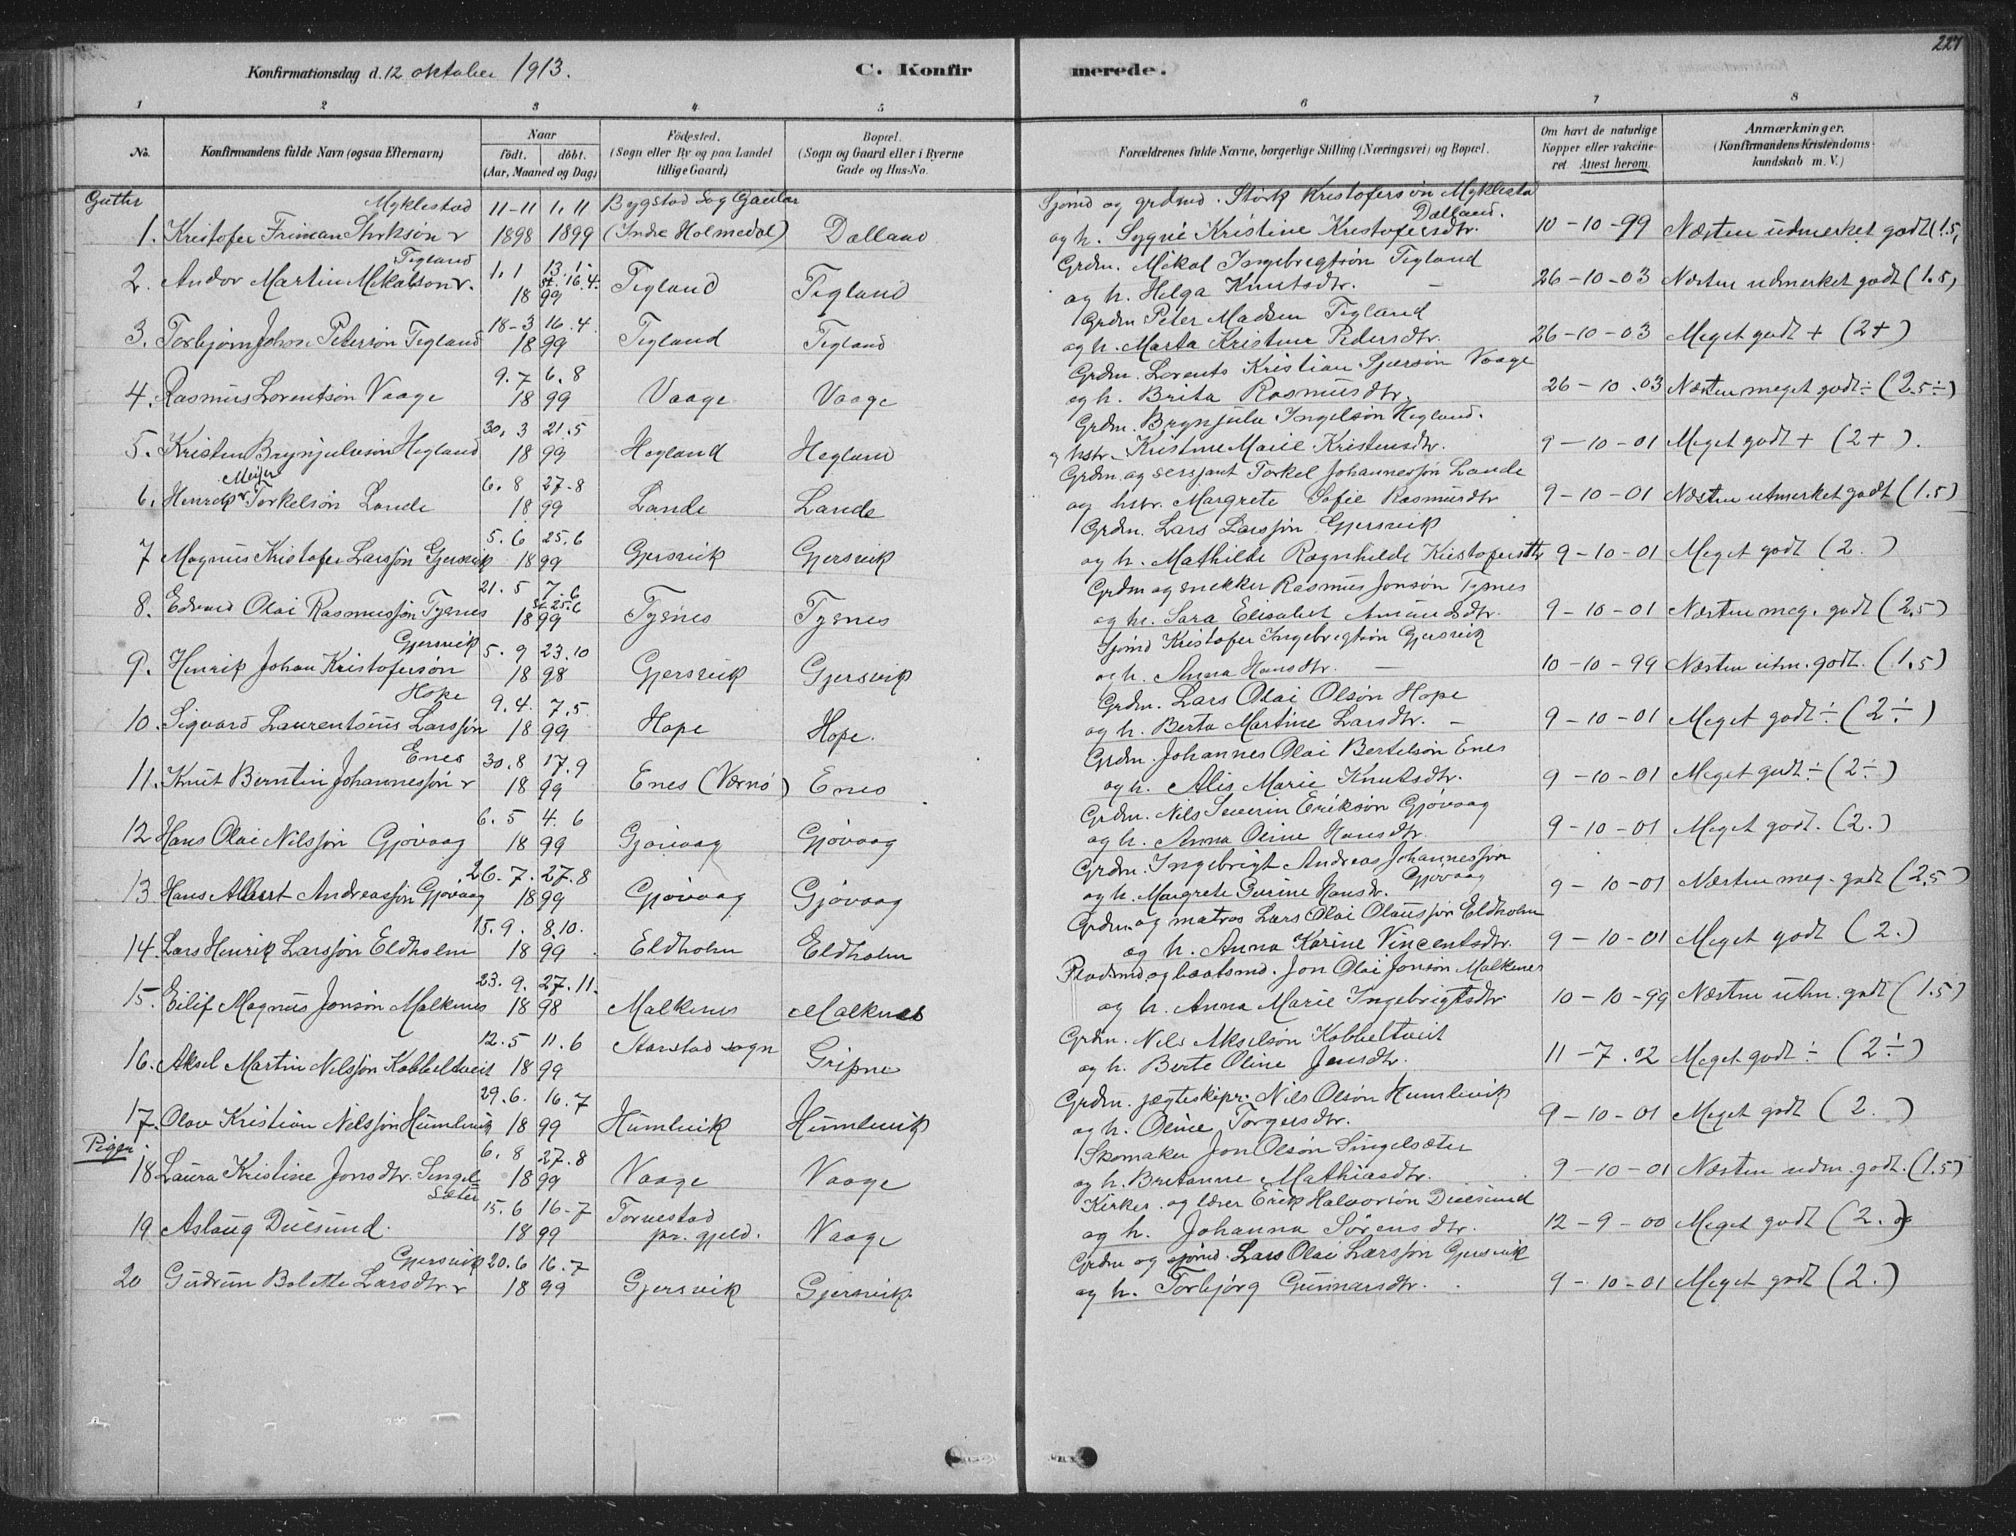 227
Konfirmationsdag d. 12 oktober 1913.
C. Konfirmerede.
1 2 3 4 5 6 7 8
No.
Konfirmandens fulde Navn (ogsaa Efternavn)
Naar
födt. döbt.
(Aar, Maaned og Dag)
Födested.
(Sogn eller By og paa Landet tillige Gaard)
Bopæl.
(Sogn og Gaard eller i Byerne Gade og Hus-No.
Forældrenes fulde Navne, borgerlige Stilling (Næringsvei) og Bopæl.
Om havt de naturlige Kopper eller vaccineret. Attest herom.
Anmærkninger.
(Konfirmandens Kristendomskundskab m. V.)
Gutter
Myklestad 11-11 1.11 Bygstad Sogn Gaular Sjømd og grdmd. Kristofersøn Myklestad
Dalland.
1. Kristofer Friman 1898 1899 (Indre Holmedal) Dalland og h. Kristine Kristofersdtr. 10-10-99 Næsten udmerket godt (1.5)
Tegland 1.1 13.1. st. 16.4. Grdm. Mikal Ingebregtsøn Tegland
2. Andor Martin Mikalsøn 1899 Tegland Tegland og h. Helga Knutsdtr. 26-10-03 Næsten udmerket godt (1.5)
18-3 16.4 Grdm Peter Madsen Tegland
3. Torbjørn Johan Petersøn Tegland 1899 Tegland Tegland og h. Marta Kristine Pedersdtr. 26-10-03 Meget godt + (2+)
9.7 6.8 Grdm. Lorents Kristian Vaage
4. Rasmus Lorentsøn Vaage 1899 Vaage Vaage og h. Brita Rasmusdtr. 26-10.03 Næsten meget godt ÷ (2.5÷)
30.3 21.5 Grdm. Brynjulv Ingelsøn Hegland.
5. Kristen Brynjulvsøn Hegland 1899 Hegland Hegland og hstr. Kristine Marie Kristensdtr. 9-10-01 Meget godt + (2+).
6.8 27.8 Grdm og sersjant Torkel Johannesøn Lande
6. Henrik Torkelsøn Lande 1899 Lande Lande og hstr. Margrete Sofie Rasmusdtr 9-10-01 Næsten utmerket godt (1.5)
5.6 25.6 Grdm. Lars Larsson Gjersvik
7 Magnus Kristofer Larsson Gjersvik 1899 Gjersvik Gjersvik og h. Mathilde Ragnhilde Kristofersdtr 9-10-01 Meget godt (2.)
21.5 7.6 st 25.6 Grdm og snekker Rasmus Jonsøn Tysnes
8. Edvard Olai Rasmussøn Tysnes 1899 Tysnes Tysnes og h. Sara Elisabet Amundsdtr. 9-10-01 Næsten meg. godt (2.5)
Gjersvik 5.9 23.10 Sjømd Kristofer Ingebregtsøn Gjersvik
9. Henrik Johan Kristofersøn 1898 Gjersvik Gjersvik og h. Anna Hansdtr. 10-10-99 Næsten utm. godt. (1.5)
Hope 9.4. 7.5 Grdm. Lars Olai Olsøn Hope
10. Sigvard Laurentsius Larssøn 1899 Hope Hope. og h. Berta Martine Larsdtr. 9-10-01 Meget godt ÷ (2÷)
Enes 30.8 17.9 Grdm. Johannes Olai Bertelsøn Enes
11. Knut Berntin Johannessøn 1899 Enes (Værnø) Enes og h. Alis Marie Knutsdtr. 9-10-01 Meget godt ÷ (2÷)
6.5 4.6 Grdm. Nils Severin Eriksøn Gjøvaag
12 Hans Olai Nilssøn Gjøvaag 1899 Gjøvaag Gjøvaag og h. Anna Oline Hansdtr. 9-10-01 Meget godt. (2.)
26.7. 27.8 Grdm. Ingebrigt Andreas Johannessøn Gjøvaag
13 Hans Albert Andreassøn Gjøvaag 1899 Gjøvaag Gjøvaag og h. Margrete Hansdr. 9-10-01 Næsten meg. godt (2.5)
15.9. 8.10. Grdm. og matros Lars Olai Olaussøn Eldholm
14. Lars Henrik Larssøn Eldholm 1899 Eldholm Eldholm og h. Anna Karine Vincentsdtr. 9-10-01 Meget godt (2.)
23.9. 27.11. Pladsmd og baatsmd. Jon Olai Jonsøn Malkenes
15. Eilif Magnus Jonsøn Malkenes 1898 Malkenes Malknes og h. Anna Marie Ingebrigtsdtr 10-10-99 Næsten utm. godt (1.5)
12.5 11.6 Grdm. Nils Akselsøn Kobbeltveit
16. Aksel Martin Nilssøn Kobbeltveit 1899 Aarstad sogn Gripne og h. Berte Oline Jensdtr. 11-7.02 Meget godt ÷ (2÷)
29.6. 16.7 Grdm. jægteskipr. Nils Olsøn Humlevik
17. Olav Kristian Nilssøn Humlevik 1899 Humlevik Humlevik og h. Oline Torgersdtr. 9-10-01 Meget godt (2.)
Piger.
6.8 27.8 Skomaker Jon Olsøn Singelsæter
18 Laura Kristine Jonsdtr. Singelsæter 1899 Vaage Vaage og h. Britanne Mathiasdtr. 9-10-01 Næsten udm. godt. (1.5)
15.6 16-7 Kirkes. og lærer Erik Halvorsøn Duesund
19 Aslaug Duesund. 1899 Torvestad pr. gjeld. Vaage og h. Johanna Sørensdtr. 12-9-00 Meget godt (2.)
Gjersvik 20.6 16.7 Grdm og sjømd. Lars Olai Larssøn Gjersvik
20 Gudrun Bolette Larsdtr 1899 Gjersvik Gjersvik og h. Torbjørg Gunnarsdtr. 9-10-01 Meget godt (2.)